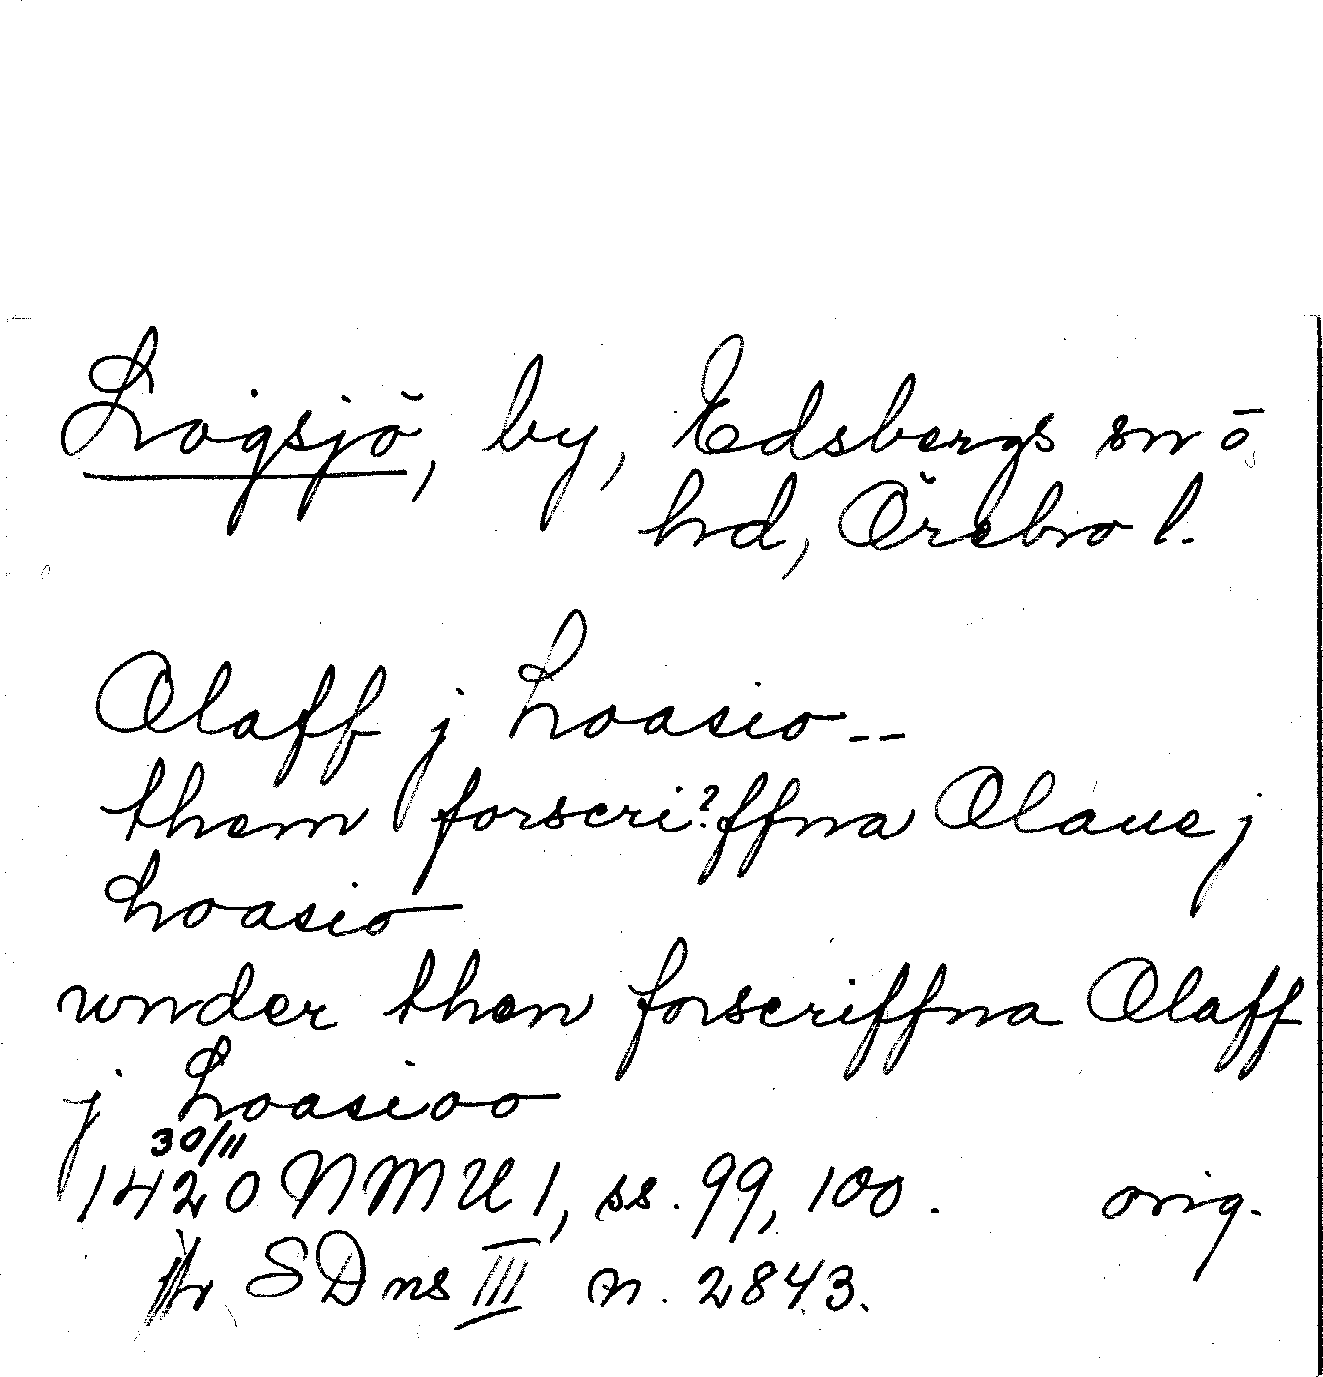 Logsjö, by, Edsbergs sn o
hd, Örebro l.
Olaff j Loasio--
them forscri?ffna Olaue j
Loasio
wnder then forscriffna Olaff
j Loasioo
30/11
1420 NMU 1, ss. 99, 100. orig.
SD ns III n. 2843.